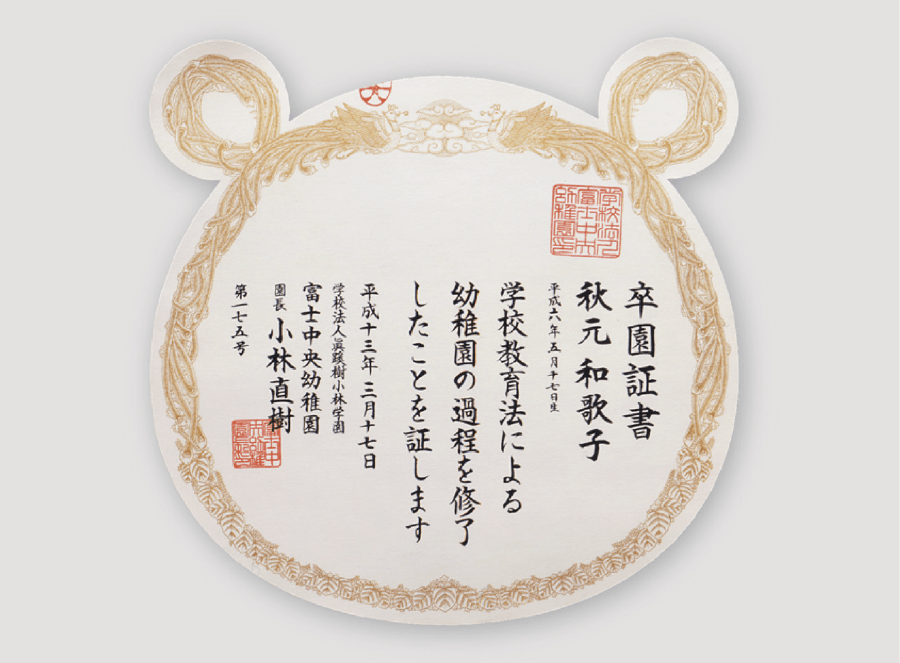 卒園証書
秋元和歌子
平成六年五月十七日生
学校教育法による
幼稚園の過程を修了
したことを証します
平成十三年三月十七日
学校法人眞蹊樹小林学園
富士中央幼稚園
園長 小林直樹
第一七五号